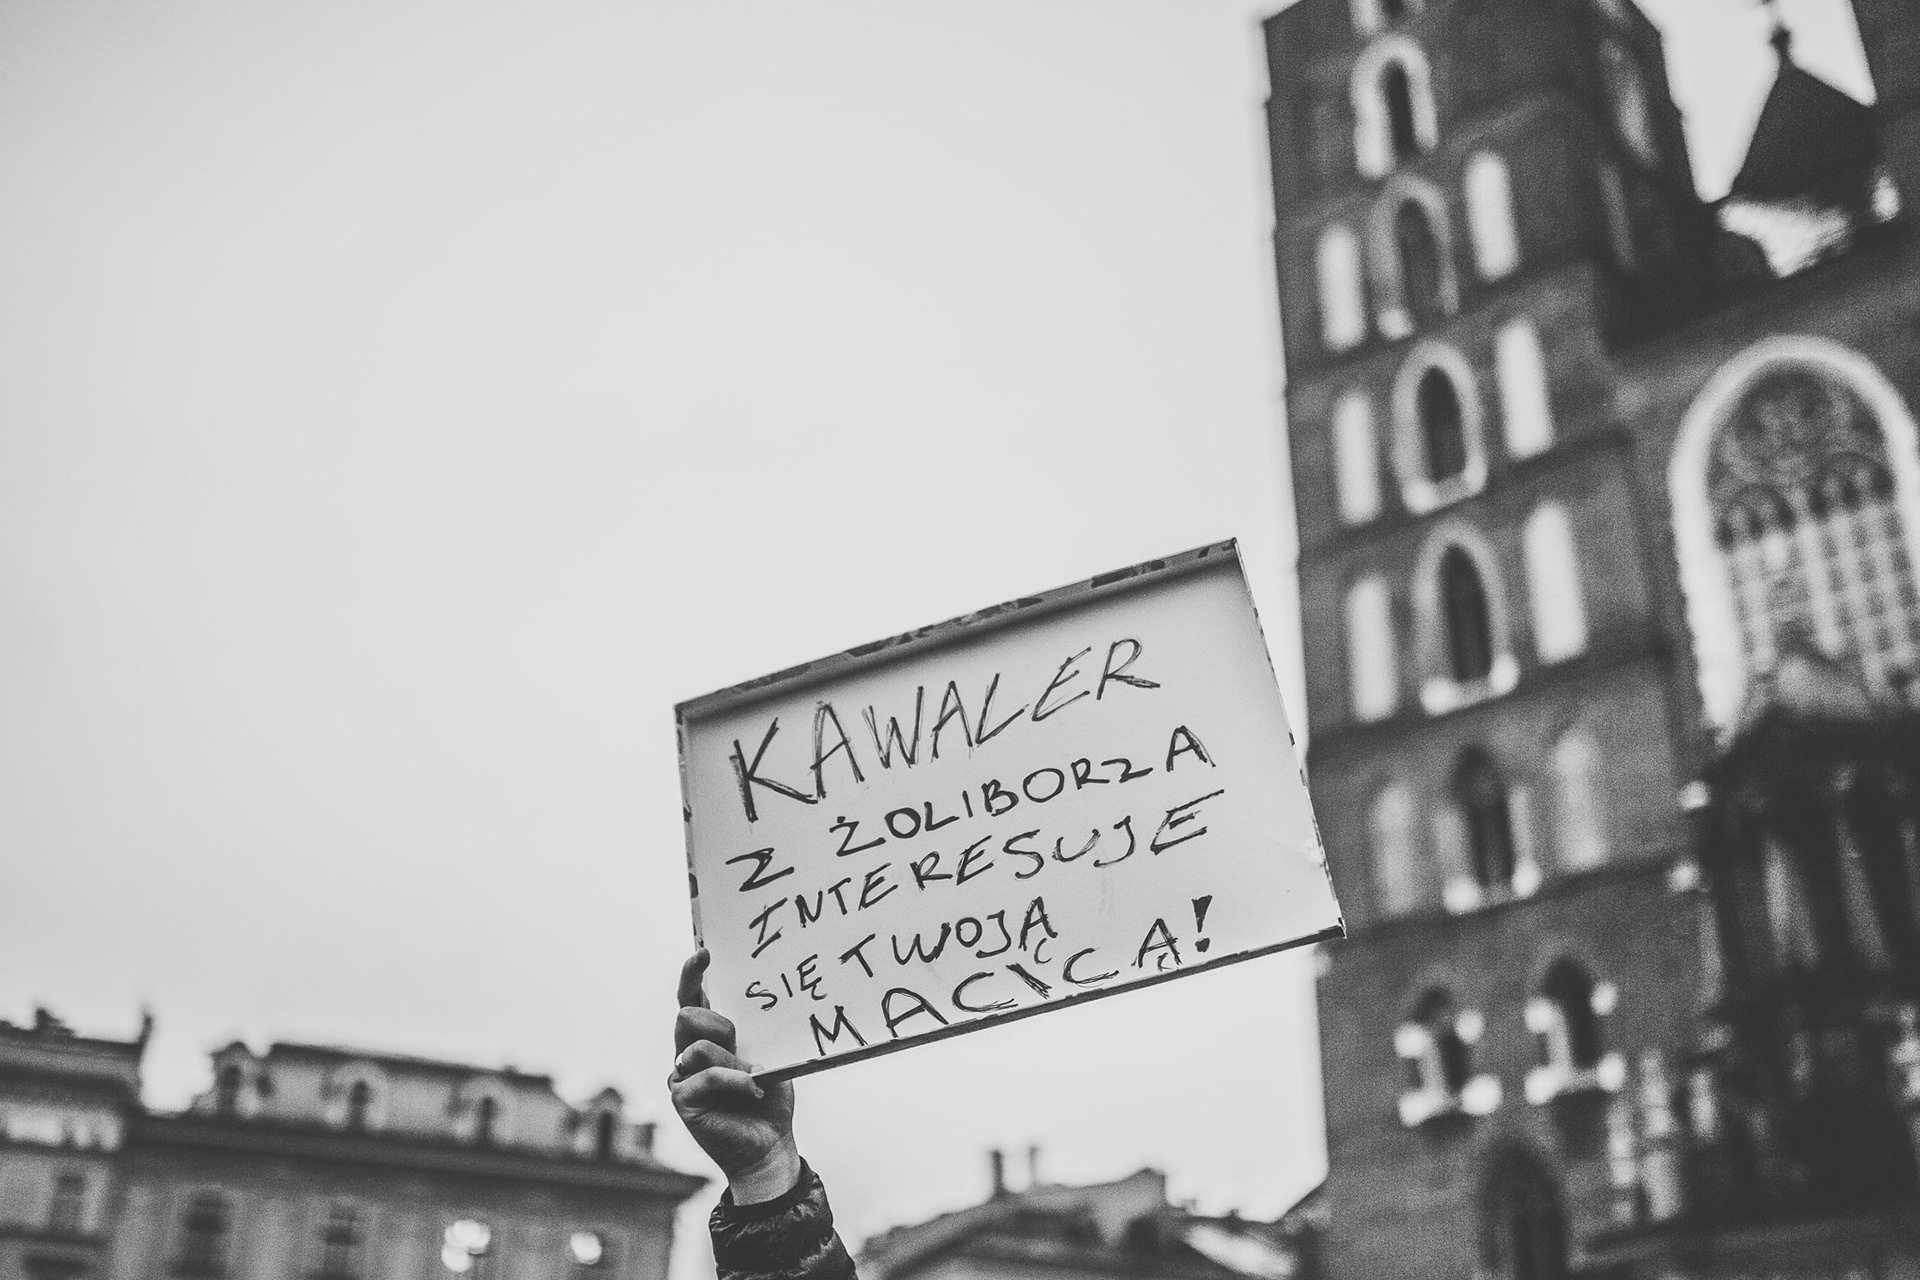 KAWALER
Z ŻOLIBORZA
INTERESUJE
SIĘ TWOJĄ
MACICĄ!